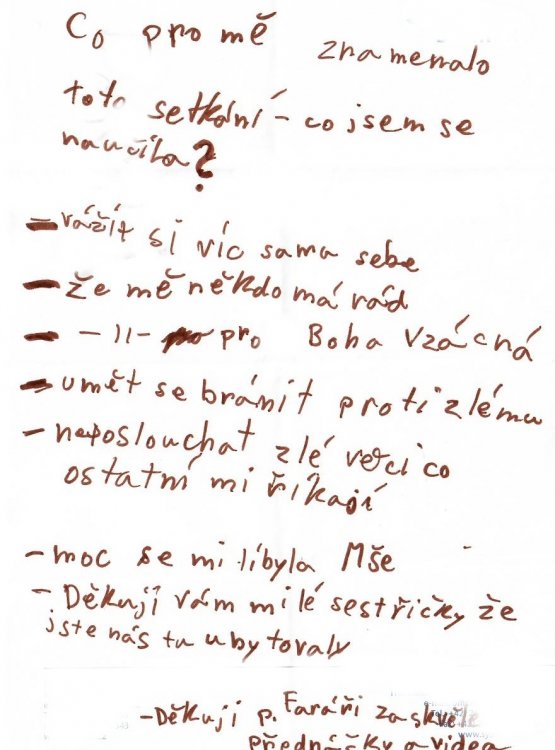 Co pro mě znamenalo
toto setkání - co jsem se
naučila?
- vážit si víc sama sebe
- že mě někdo má rád
- -11- pro Boha vzácná
- umět se bránit proti zlému
- neposlouchat zlé věci co
ostatní mi říkají
- moc se mi líbyla Mše
- Děkují vám milé sestřičky že
jste nás tu ubytovaly
- Děkuji p. Faráři za skvělé
přednáčky a videa